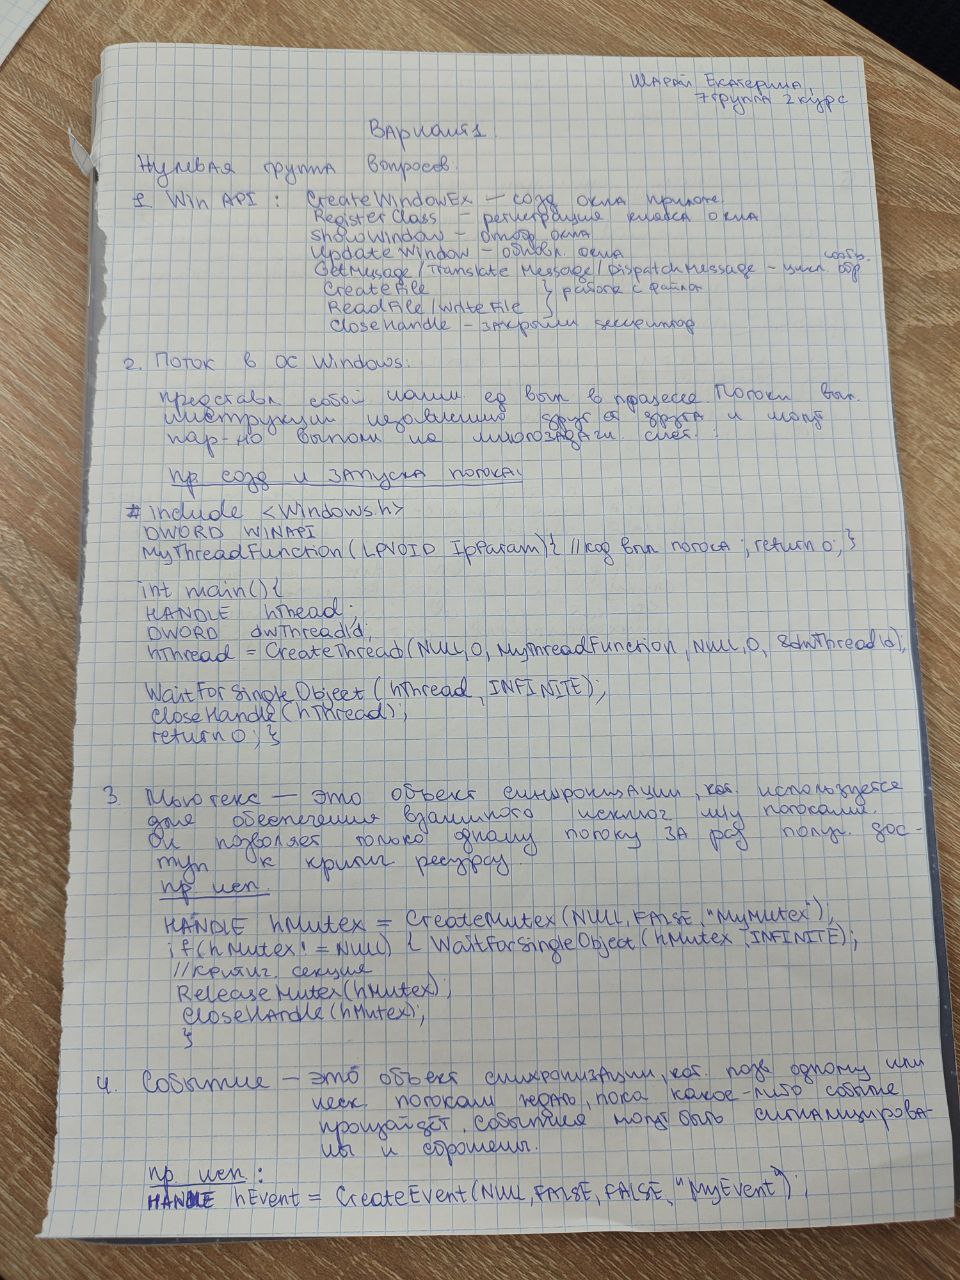 Шарай Екатерина,
7 группа 2 курс
Вариант 1.
Нулевая группа вопросов.
1. Win API : CreateWindowEx – созд окна прилож.
RegisterClass – регистрация класса окна
ShowWindow – отобр окна
UpdateWindow – обновл. окна
GetMessage/TranslateMessage/DispatchMessage – цикл. обр. сообщ.
CreateFile } работа с файлом
ReadFile/WriteFile
CloseHandle – закрытие дескриптор
2. Поток в ОС Windows:
представл собой наим ед вып в процессе Потоки вып.
инструкции независимо друг от друга и могут
пар-но выполн на многозадачн. сист.
пр созд и запуска потока:
# include <Windows.h>
DWORD WINAPI
MyThreadFunction (LPVOID lpParam) { //код вып потока ; return 0; }
int main() {
HANDLE hThread;
DWORD dwThreadId;
hThread = CreateThread (NULL, 0, MyThreadFunction, NULL, 0, &dwThreadId);
WaitForSingleObject (hThread, INFINITE);
CloseHandle (hThread);
return 0; }
3. Мьютекс – это объект синхронизации, кот используется
для обеспечения взаимного исключ м/у потоками.
Он позволяет только одному потоку за раз получ. дос-
туп к критич ресурсу.
пр исп.
HANDLE hMutex = CreateMutex (NULL, FALSE, "MyMutex");
if (hMutex != NULL) { WaitForSingleObject (hMutex, INFINITE);
//критич. секция
ReleaseMutex (hMutex);
CloseHandle (hMutex);
}
4. Событие – это объект синхронизации, кот. позв одному или
неск потокам ждать, пока какое-либо событие
произойдёт. События могут быть сигнализирова-
ны и сброшены.
пр исп :
HANDLE hEvent = CreateEvent (NULL, FALSE, FALSE, "MyEvent");